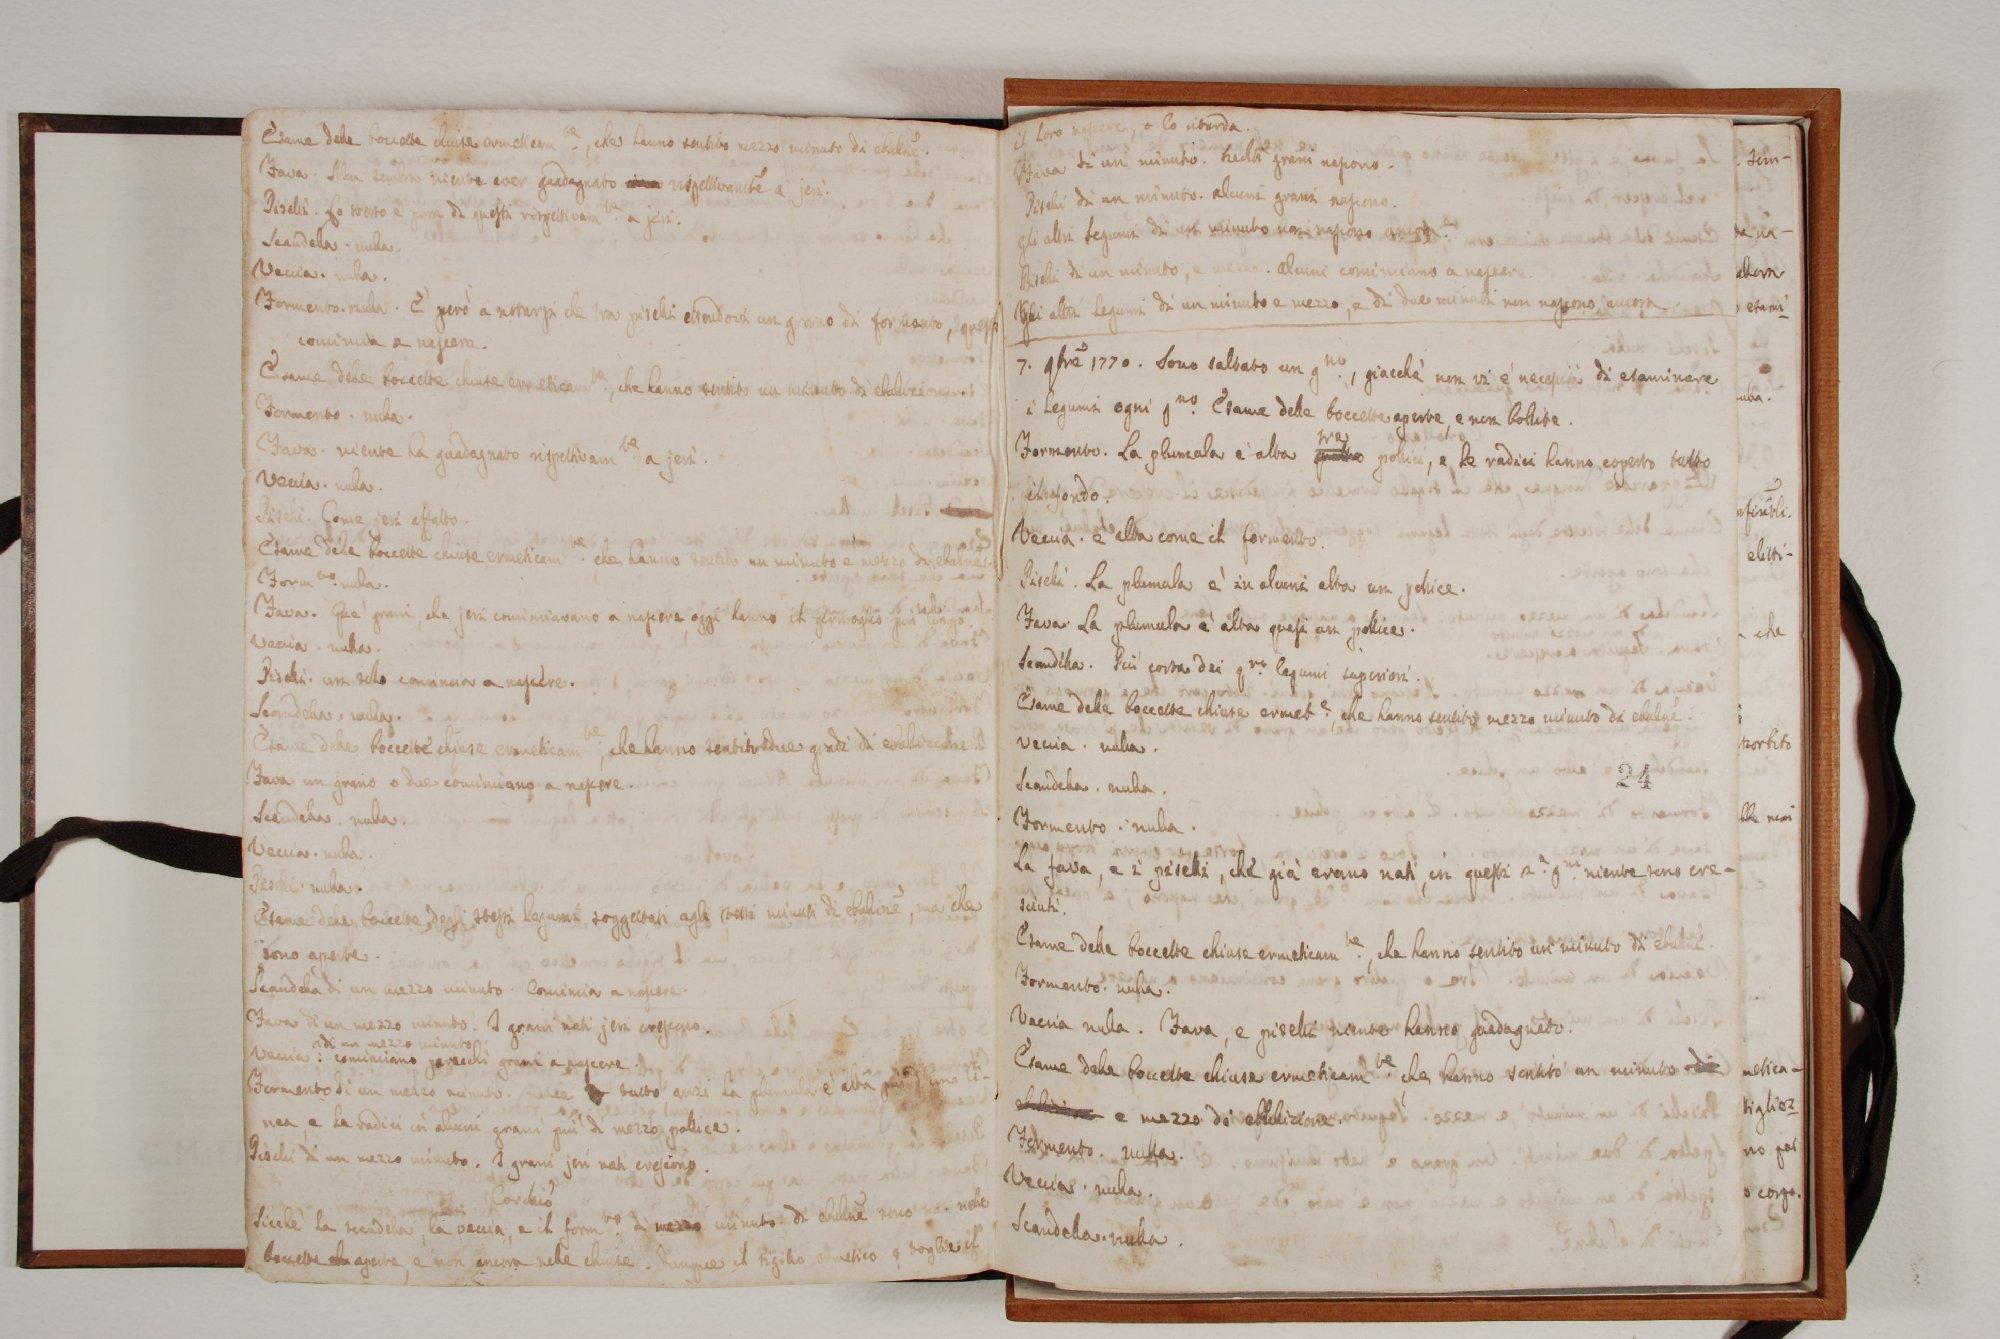 Esame delle boccette chiuse ermeticam.te, che hanno sentito mezzo minuto di ebulne.
Fava. Non sembra niente aver guadagnato rispettivamte a jeri.
Piselli. Lo stesso è pure di questi rispettivam.te a jeri.
Scandella. nulla.
Veccia. nulla.
Formento. nulla. È però a notarsi che tra piselli essendovi un grano di formento, questo
comincia a nascere.
Esame delle boccette chiuse ermeticam.te, che hanno sentito un minuto di ebulizione.
Formento. nulla.
Fava. niente ha guadagnato rispettivam.te a jeri.
Veccia. nulla.
Piselli. Come jeri affatto.
Esame delle boccette chiuse ermeticam.te che hanno sentito un minuto e mezzo di ebulne.
Form.to nulla.
Fava. Que' grani, che jeri cominciavano a nascere, oggi hanno il germoglio più lungo.
Veccia. nulla.
Piselli. un solo comincia a nascere.
Scandella. nulla.
Esame delle boccette chiuse ermeticam.te, che hanno sentito due di ebulizione.
Fava un grano o due cominciano a nascere.
Scandella. nulla.
Veccia. nulla.
Piselli. nulla.
Esame delle boccette degli stessi legumi soggettati agli stessi minuti di ebulne, ma che
sono aperte.
Scandella di un mezzo minuto. Comincia a nascere.
Fava di un mezzo minuto. I grani nati jeri crescono.
di un mezzo minuto
Veccia: cominciano parecchi grani a nascere.
Formento di un mezzo minuto. nasce tutto anzi la plumula è alta più d'una li-
nea, e le radici in alcuni grani più di mezzo pollice.
Piselli di un mezzo minuto. I grani jeri nati crescono.
Corollo
Sicchè la scandella, la veccia, e il form.to di mezzo minuto di ebulne sono nelle
boccette aperte, e non ancora nelle chiuse. Dunque il sigillo ermetico o toglie il
il loro nascere, o lo ritarda.
Fava di un minuto. grani nascono.
Piselli di un minuto. alcuni grani nascono.
gli altri legumi di un minuto non nascono ancora.
Piselli di un minuto, e mezzo. alcuni cominciano a nascere.
Gli altri legumi di un minuto e mezzo, e di due minuti non nascono ancora.
7. 9bre 1770. Sono saltato un g.no, giacchè non vi è necessità di esaminare
i legumi ogni g.no. Esame delle boccette aperte, e non bollite.
tre
Formento. La plumula è alta quattro pollici, e le radici hanno coperto tutto
il fondo.
Veccia. è alta come il formento.
Piselli. La plumula è in alcuni alta un pollice.
Fava. La plumula è alta quasi un pollice.
Scandella. Più corta dei q.ro legumi superiori.
Esame delle boccette chiuse ermet.e, che hanno sentito mezzo minuto di ebulne.
Veccia. nulla.
Scandella. nulla.
24
Formento. nulla.
La fava, e i piselli, che già erano nati, in questi 2. g.ni niente sono cre-
sciuti.
Esame delle boccette chiuse ermeticam.te, che hanno sentito un minuto di ebulne.
Formento. nulla.
Veccia nulla. Fava, e piselli niente hanno guadagnato.
Esame delle boccette chiuse ermeticam.te che hanno sentito un minuto di
ebulizione e mezzo di ebulizione.
Formento. nulla.
Veccia. nulla.
Scandella. nulla.